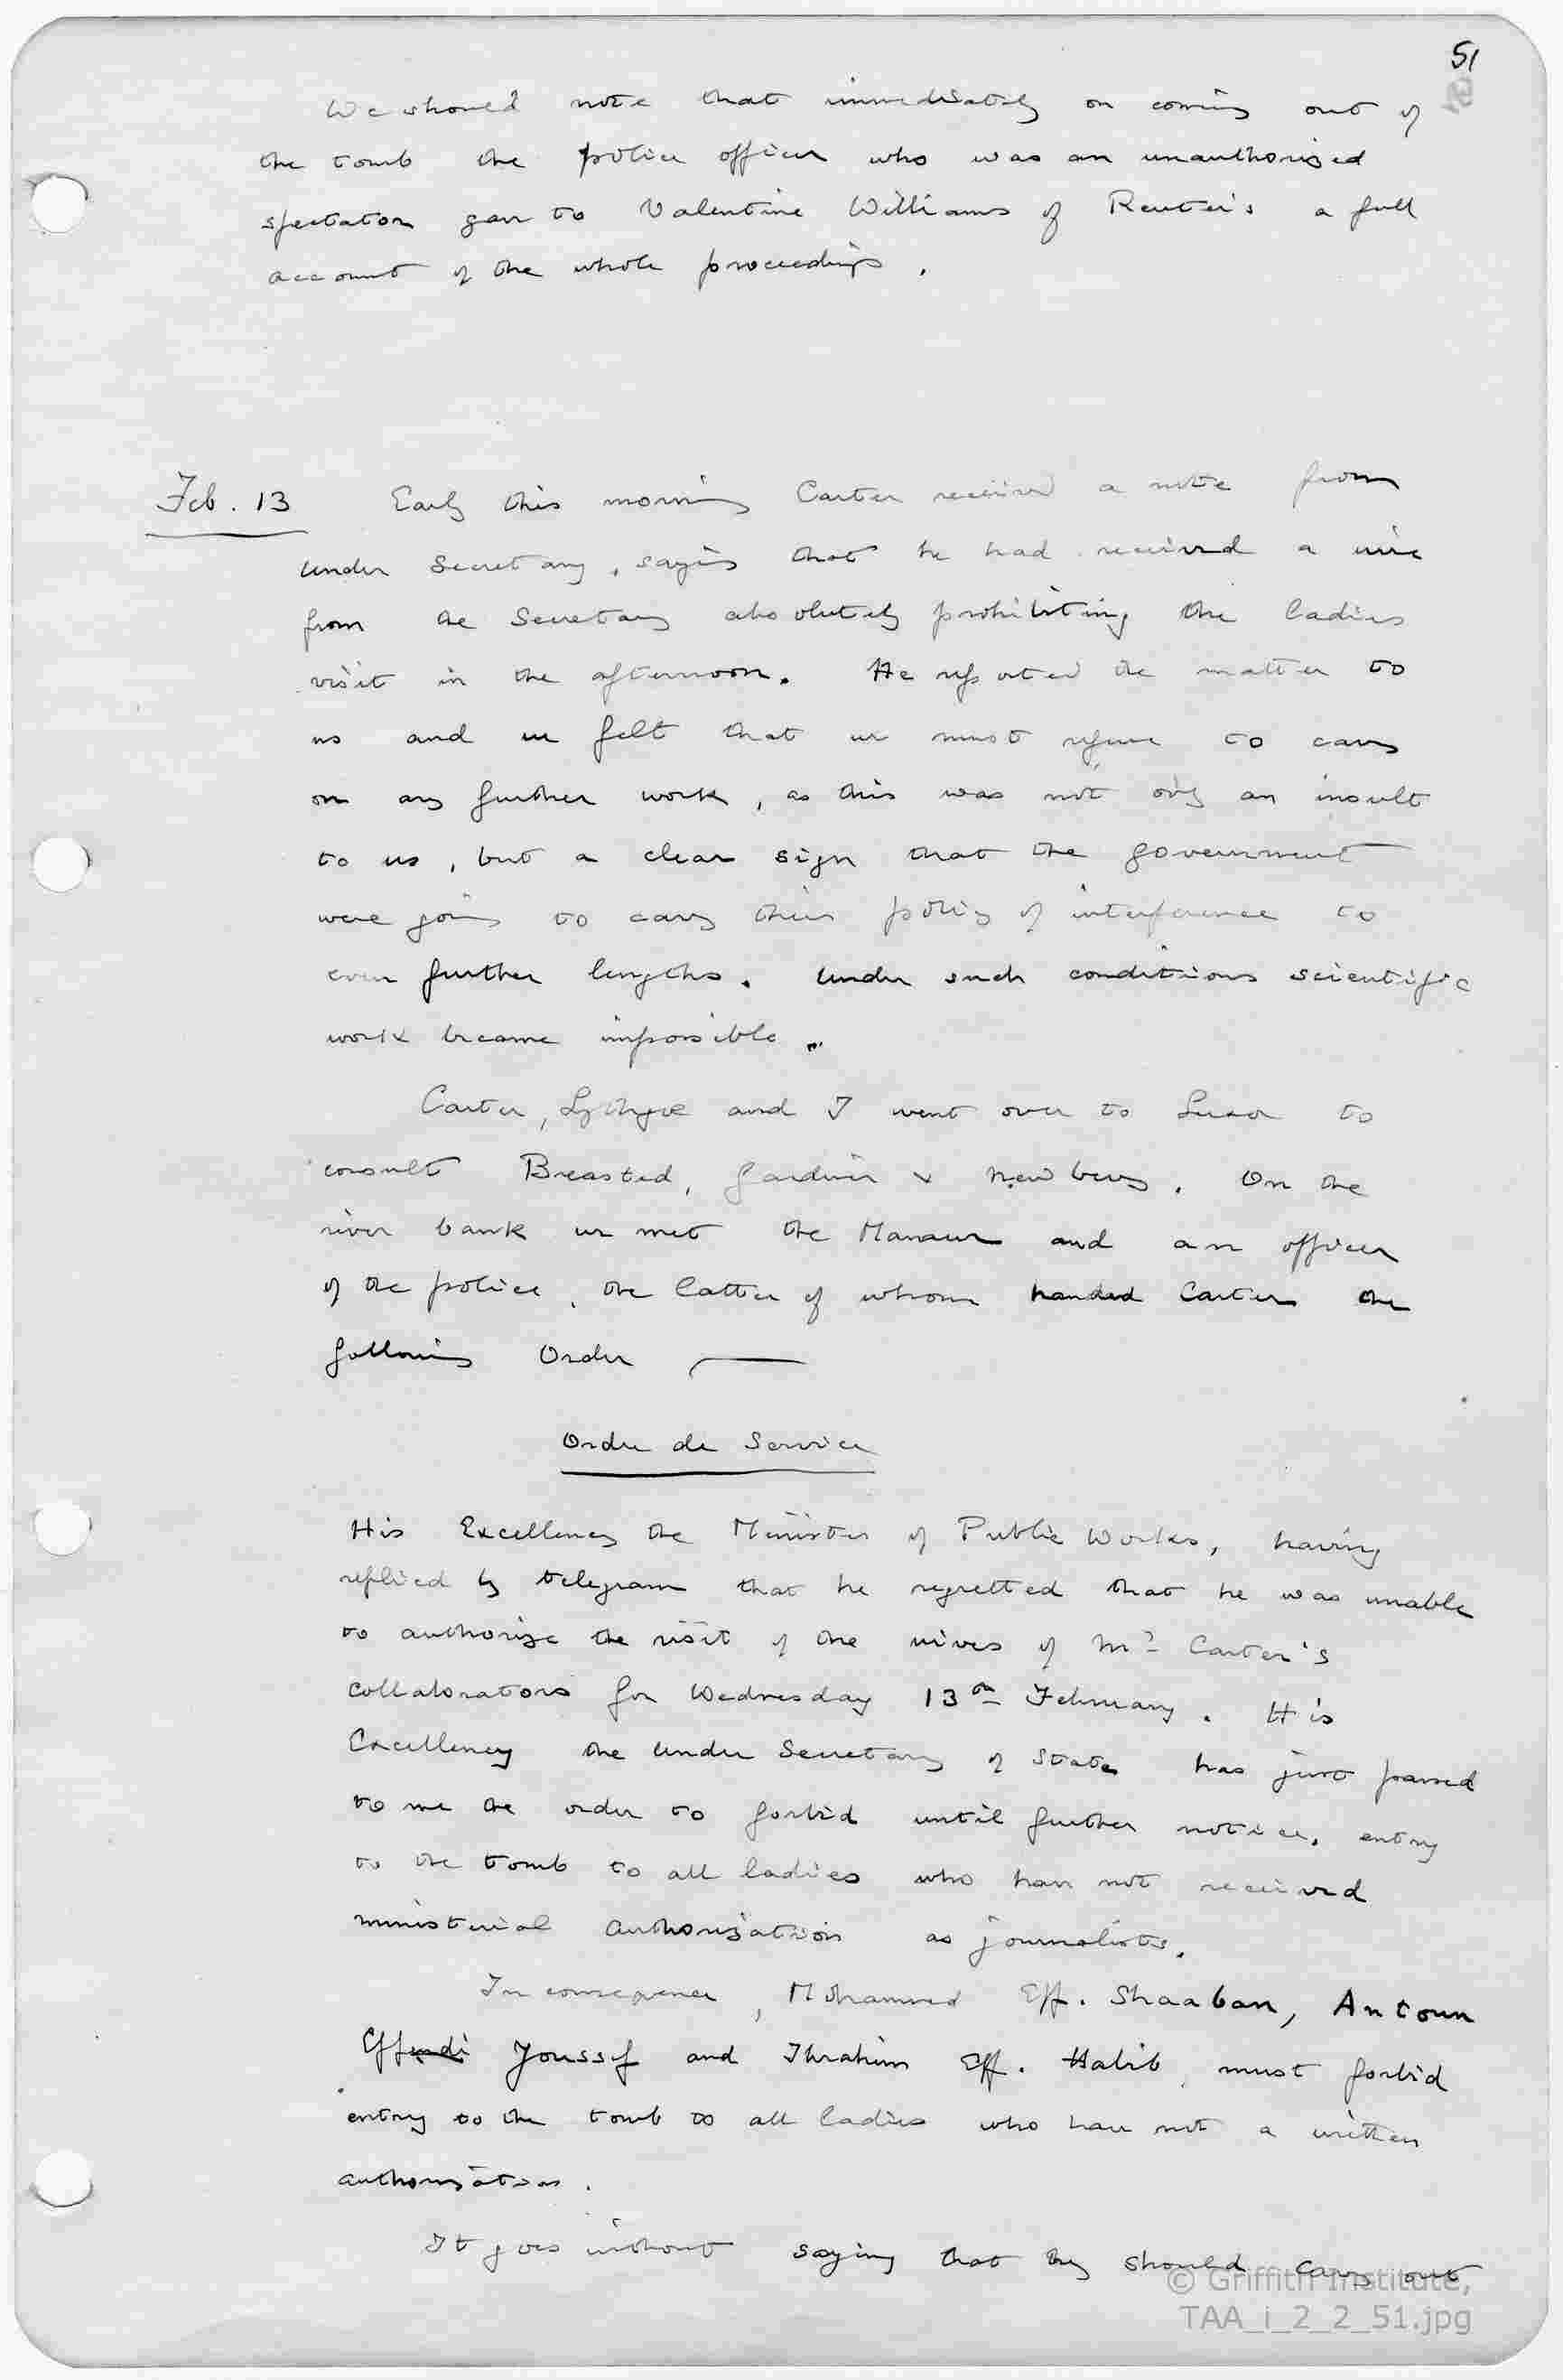 51
We should note that immediately on coming out of
the tomb the police officer who was an unauthorised
spectator gave to Valentine Williams of Reuter's a full
account of the whole proceedings.
Feb. 13 Early this morning Carter received a note from
Under Secretary, saying that he had received a wire
from the Secretary absolutely prohibiting the ladies
visit in the afternoon. He reported the matter to
us and we felt that we must refuse to carry
on any further work, as this was not only an insult
to us, but a clear sign that the government
were going to carry their policy of interference to
even further lengths. Under such conditions scientific
work became impossible.
Carter, Lythgoe and I went over to Luxor to
consult Breasted, Gardiner & Newberry. On the
river bank we met the Mamur and an officer
of the police, the latter of whom handed Carter the
following Order —
Ordre de Service
His Excellency the Minister of Public Works, having
replied by telegram that he regretted that he was unable
to authorise the visit of the wives of Mr Carter's
collaborators for Wednesday 13th February. His
Excellency the Under Secretary of State has just passed
to me the order to forbid until further notice, entry
to the tomb to all ladies who have not received
ministerial authorisation as journalists.
In consequence, Mohammed Eff. Shaaban, Antoun
Effendi Youssef and Ibrahim Eff. Habib, must forbid
entry to the tomb to all ladies who have not a written
authorisation.
It goes without saying that they should carry out
© Griffith Institute,
TAA_i_2_2_51.jpg